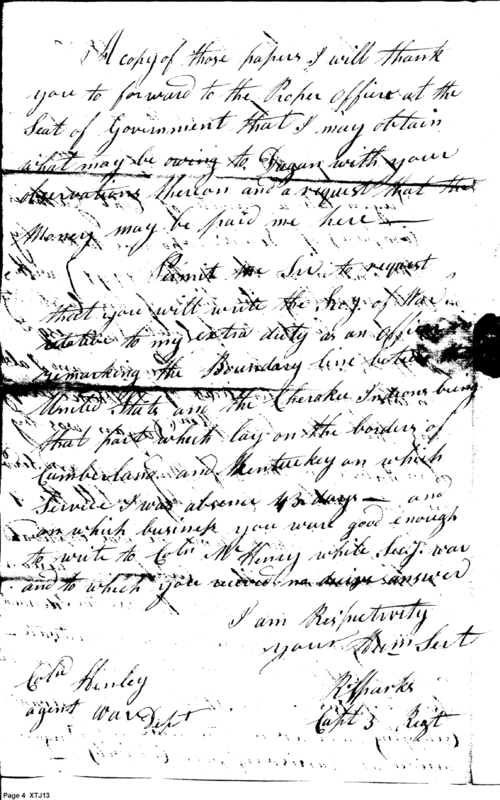 A copy of those papers I will thank
you to forward to the Proper Officer at the
Seat of Government that I may obtain
what may be owing to Dugan with your
observations thereon and a request that the
Money may be paid me here —
Permit me Sir to request
that you will write the Secy. of War
relative to my extra duty as an Officer
remarking the Boundary line
United States and the Cherokee Indians being
that part which lay on the borders of
Cumberland and Kentuckey on which
Service I was absence 43 days — and
on which business you ware good enough
to write to Coln McHenry while Secy. war
and to which you received no answer
I am Respectively
your Humc Sert
Coln Henley
agent War Dept
R Sparks
Capt 3 Regt
Page 4 XTJ13